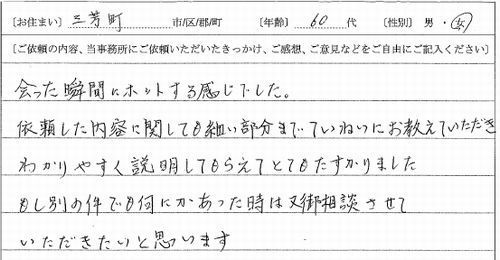 [お住まい] 三芳町 市/区/郡/町 [年齢] 60 代 [性別] 男・女
[ご依頼の内容、当事務所にご依頼いただいたきっかけ、ご感想、ご意見などをご自由にご記入ください]
会った瞬間にホットする感じでした。
依頼した内容に関しても細い部分までていねいにお教えていただき
わかりやすく説明してもらえてとてもたすかりました
もし別の件でも何にかあった時は又御相談させて
いただきたいと思います